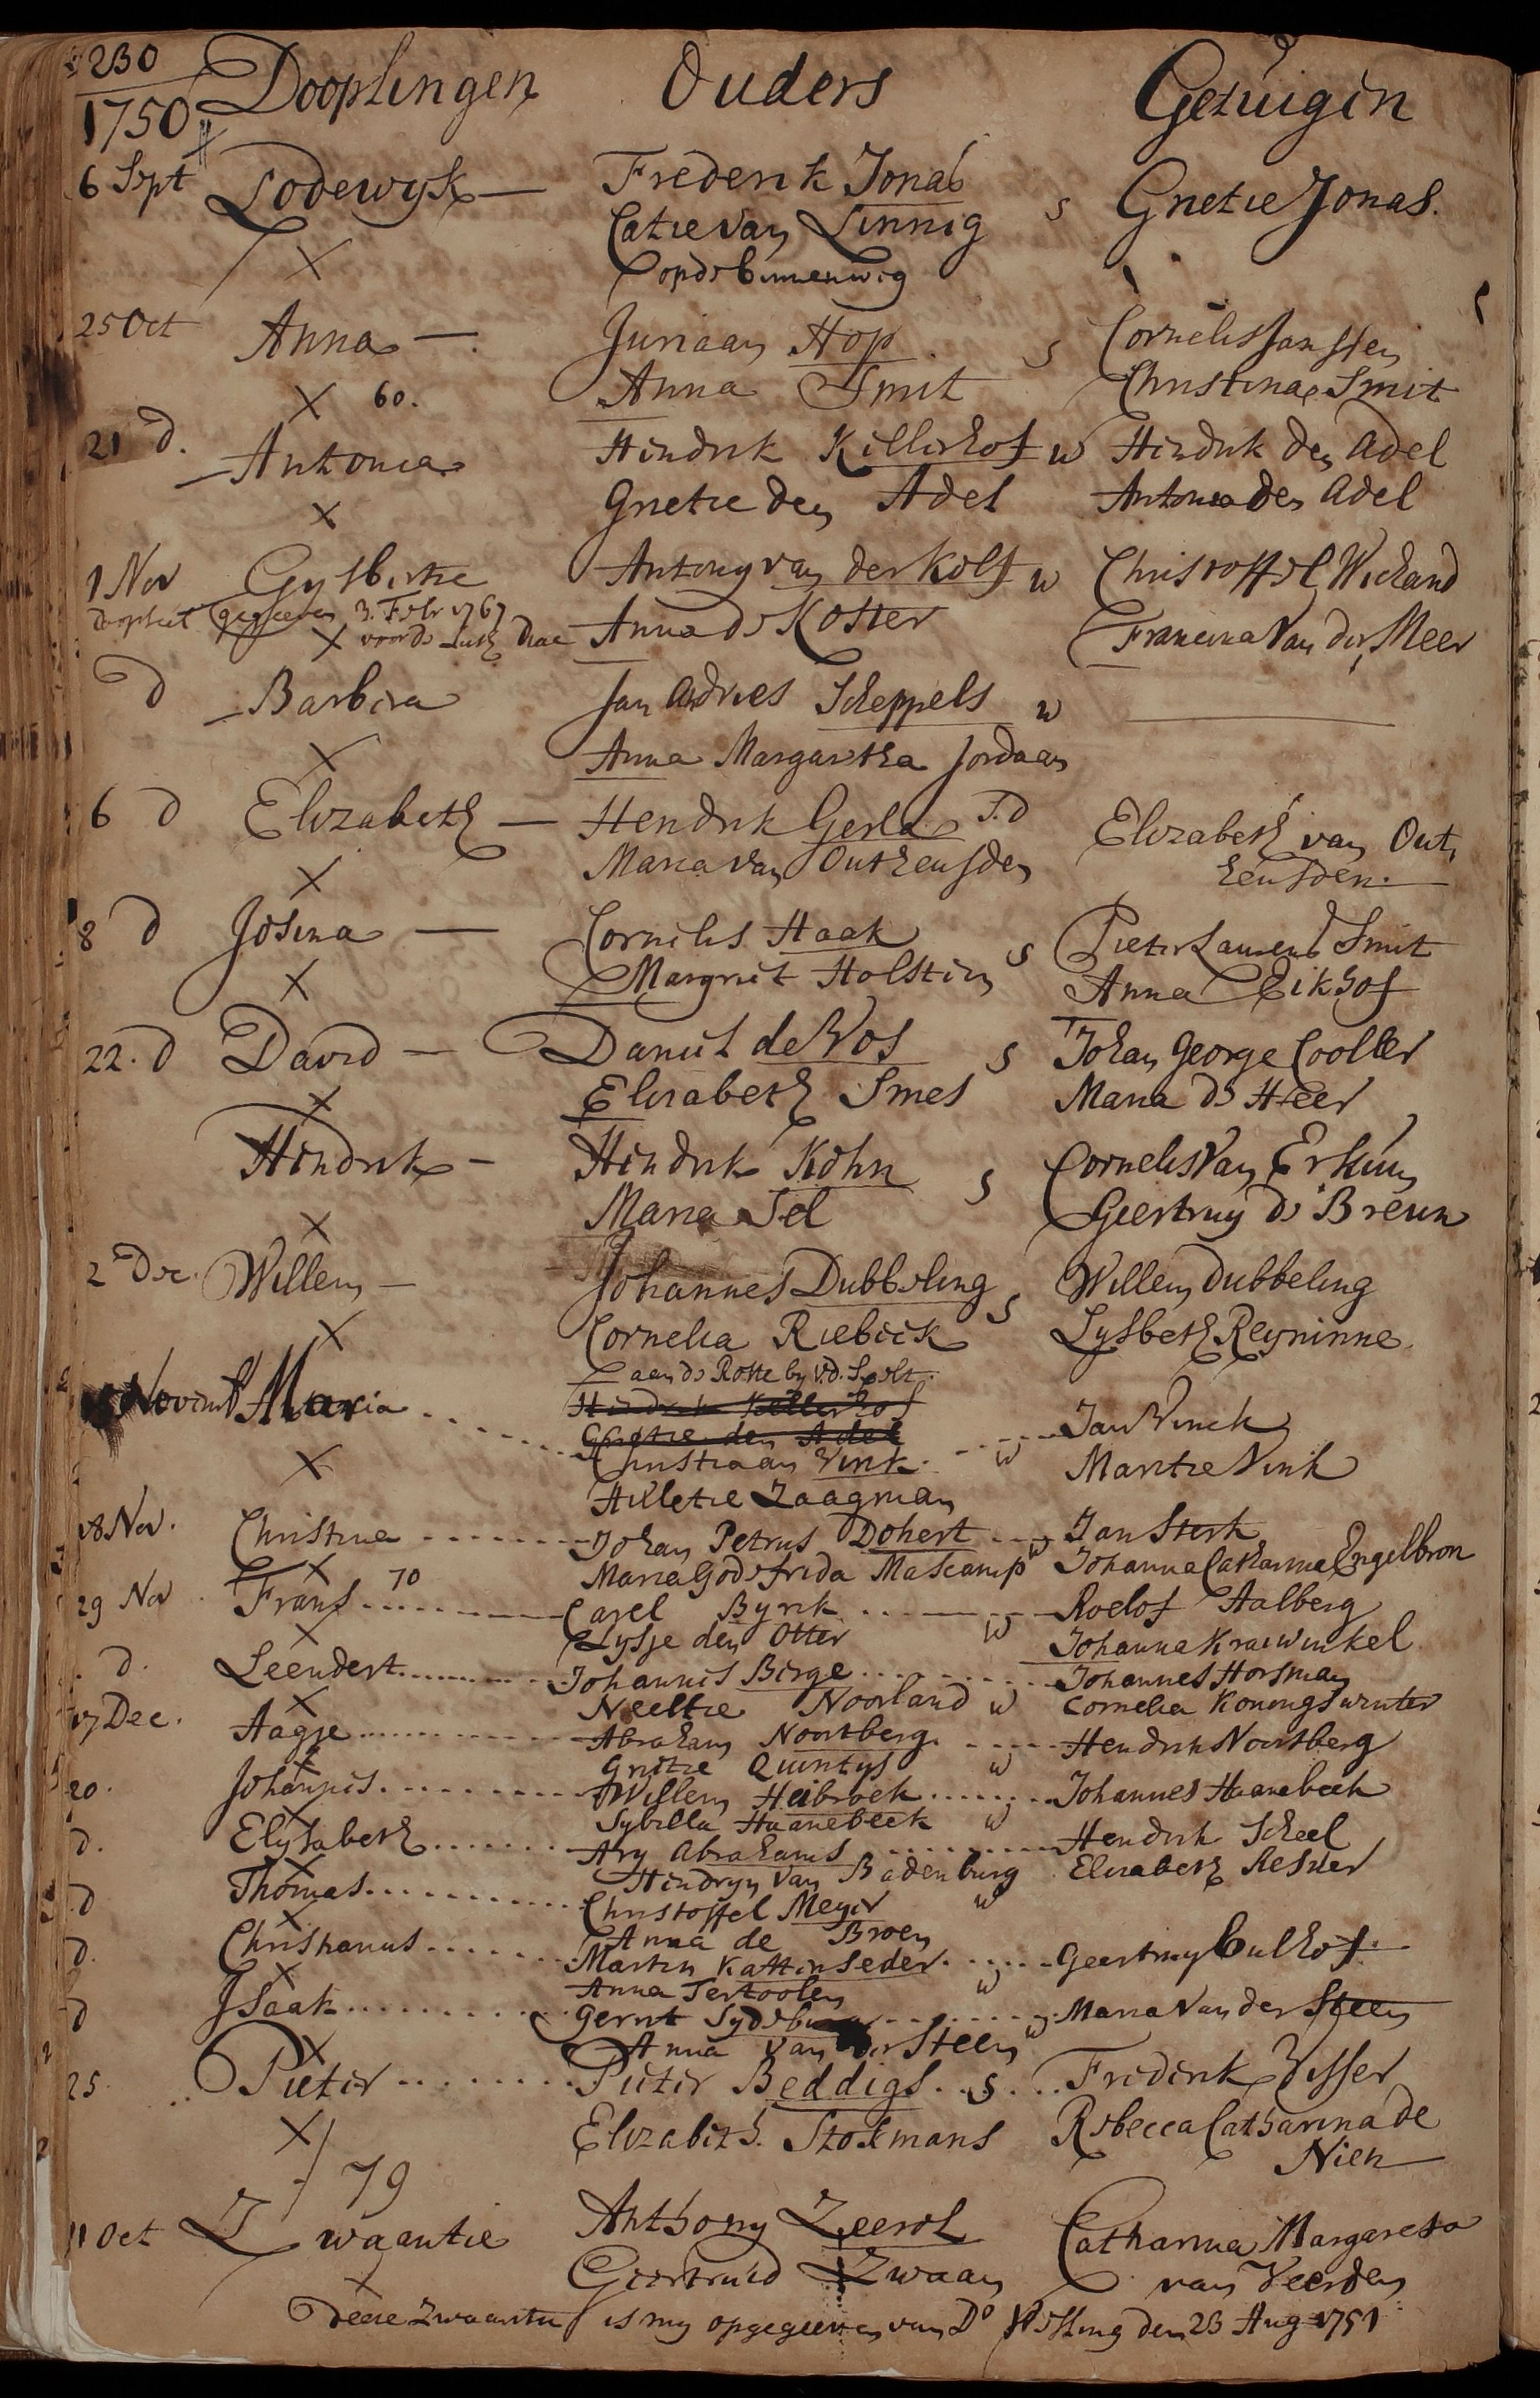 230
1750 Dooplingen Ouders Getuigen
6 Sept Lodewyk — Frederik Jonas s Grietie Jonas.
Catie van Linnig
op de binnenweg
25 Oct Anna — Juriaan Hop s Cornelis Janssen
X 60. Anna Smit Christina Smit
21 d. Antonia Hendrik Killerhof w Hendrik den Adel
X Grietie den Adel Antonia den Adel
1 Nov Gysbertie Antony van der Kolf w Christoffel Wieland
doopceel gegeeven 3. Febr 1767 Anna de Koster Francina van der Meer
X voor de Luth diac
d Barbera Jan Andries Scheppels w
X Anna Margaretha Jordaan
6 d Elizabeth — Hendrik Gerla J.d Elizabeth van Out,
X Maria van Outheusden heusden.
8 d Josina — Cornelis Haak s Pieter Laurens Smit
X Margriet Holstein Anna Eikhof
22. d David — Daniel de Vos s Johan George Cooller
X Elisabeth Smes Maria de Heer
Hendrik — Hendrik Kohn s Cornelis van Erkum
X Maria Sel Geertruy de Breun
2 Dec. Willem — Johannes Dubbeling s Willem Dubbeling
X Cornelia Riebeek Lysbeth Reyninne
aan de Rotte by v.d.
Hendrik Killerhof
Grietie den Adel
Novemb Maria Christiaan Vink w Jan Vinck
X Hilletie Zaagman Maritie Vink
18 Nov. Christina Johan Petrus Dohert w Jan Sterk
X Maria Godefrida Mascamp Johanna Catharina Engelbron
29 Nov Frans 70 Carel Byrik w Roelof Aalberg
X Lysje den Otter Johanna Kraewinkel
d. Leendert Johannis Birge w Johannes Horsman
X Neeltie Noorland Cornelia Koningswinter
17 Dec. Aagje Abraham Noortberg w Hendrik Noortberg
X Grietie Quintys
20. Johannis Willem Heibroek w Johannes Haanebeek
X Sybilla Haanebeek
d. Elysabeth Ary Abrahams Hendrik Scheel
X Hendryn van Badenburg Elisabeth Resner
d Thomas Christoffel Meyer w
X Anna de Broen
d. Christianus Martin Kattenseder w Geertruy Bulhof.
X Anna Tertoolen
d Isaak Gerrit w Maria van der Steen
X Anna van der Steen
25. Pieter Pieter Beddigs s Frederik Visser
X Elizabeth Stokmans Rebecca Catharina de
79 Nien
11 Oct Zwaantie Anthony Zeerol Catharina Margareta
X Geertruid Zwaan van Veerden
Deese Zwaantie is my opgegeeven van Do den 23 Aug 1751